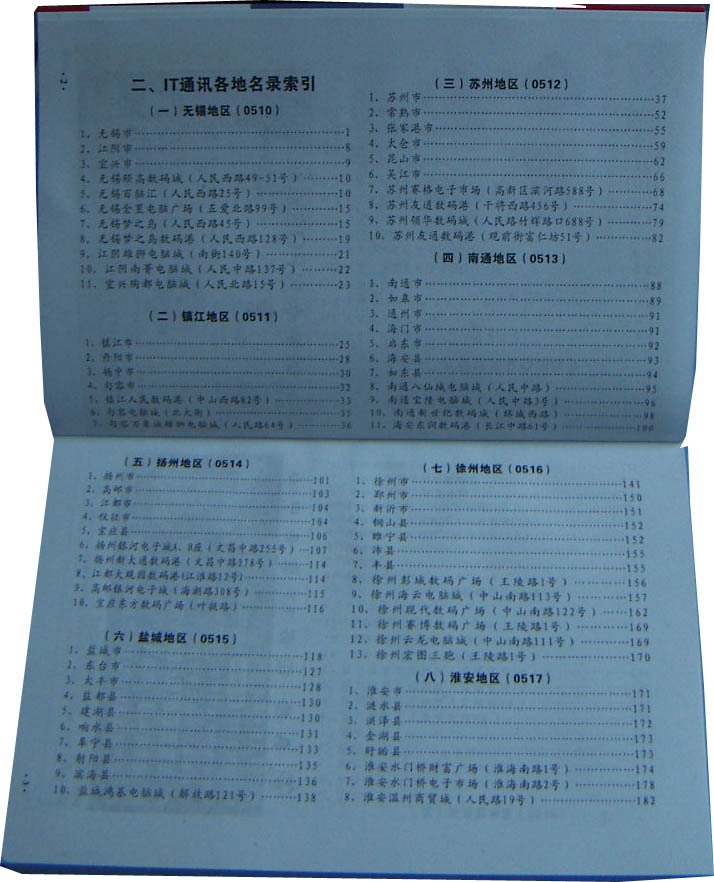 二、IT通讯各地名录索引
(一)无锡地区(0510)
1、无锡市……1
2、江阴市……8
3、宜兴市……9
4、无锡颐高数码城(人民西路49-51号)……10
5、无锡百脑汇(人民西路25号)……10
6、无锡金星电脑广场(五爱北路99号)……15
7、无锡梦之岛(人民西路45号)……15
8、无锡梦之岛数码港(人民西路128号)……19
9、江阴雄狮电脑城(南街140号)……21
10、江阴南菁电脑城(人民中路137号)……22
11、宜兴陶都电脑城(人民北路15号)……23
(二)镇江地区(0511)
1、镇江市……25
2、丹阳市……28
3、扬中市……30
4、句容市……32
5、镇江人民数码港(中山西路82号)……33
6、句容电脑城(北大街)……35
7、句容万泰城雄狮电脑城(人民路64号)……36
(三)苏州地区(0512)
1、苏州市……37
2、常熟市……52
3、张家港市……55
4、太仓市……59
5、昆山市……62
6、吴江市……66
7、苏州赛格电子市场(高新区滨河路588号)……68
8、苏州友通数码港(干将西路456号)……74
9、苏州领华数码城(人民路竹辉路口688号)……79
10、苏州友通数码港(观前街富仁坊51号)……82
(四)南通地区(0513)
1、南通市……88
2、如皋市……89
3、通州市……91
4、海门市……91
5、启东市……92
6、海安县……93
7、如东县……94
8、南通八仙城电脑城(人民中路)……95
9、南通宝隆电脑城(人民中路3号)……96
10、南通新世纪数码城(环城西路)……98
11、海安东润数码港(长江中路61号)……100
(五)扬州地区(0514)
1、扬州市……101
2、高邮市……103
3、江都市……104
4、仪征市……104
5、宝应县……106
6、扬州银河电子城A、B座(文昌中路255号)……107
7、扬州新大通数码港(文昌中路378号)……114
8、江都大观园数码港(江淮路12号)……114
9、高邮银河电子城(海潮路308号)……115
10、宝应东方数码广场(叶挺路)……116
(六)盐城地区(0515)
1、盐城市……118
2、东台市……127
3、大丰市……128
4、盐都县……130
5、建湖县……130
6、响水县……131
7、阜宁县……133
8、射阳县……135
9、滨海县……136
10、盐城鸿基电脑城(解放路121号)……138
(七)徐州地区(0516)
1、徐州市……141
2、邳州市……150
3、新沂市……151
4、铜山县……152
5、睢宁县……152
6、沛县……155
7、丰县……155
8、徐州彭城数码广场(王陵路1号)……156
9、徐州海云电脑城(中山南路113号)……157
10、徐州现代数码广场(中山南路122号)……162
11、徐州赛博数码广场(王陵路1号)……169
12、徐州云龙电脑城(中山南路111号)……169
13、徐州宏图三胞(王陵路1号)……170
(八)淮安地区(0517)
1、淮安市……171
2、涟水县……171
3、洪泽县……172
4、金湖县……173
5、盱眙县……173
6、淮安水门桥财富广场(淮海南路1号)……174
7、淮安水门桥电子市场(淮海南路2号)……178
8、淮安温州商贸城(人民路19号)……182